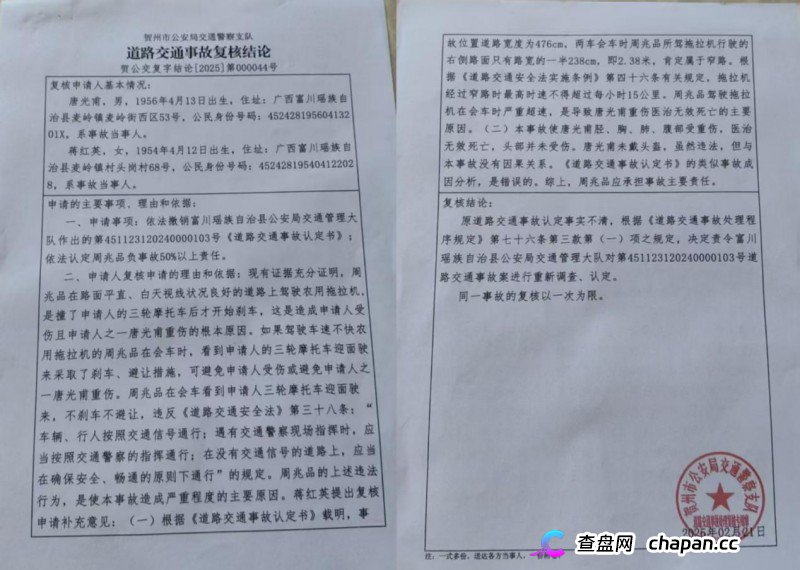 贺州市公安局交通警察支队
道路交通事故复核结论
贺公交复字结论[2025]第000044号
复核申请人基本情况：
唐光甫，男，1956年4月13日出生，住址：广西富川瑶族自
治县麦岭镇麦岭街西区53号，公民身份号码：452428195604132
01X，系事故当事人。
蒋红英，女，1954年4月12日出生，住址：广西富川瑶族自
治县麦岭镇村头岗村68号，公民身份号码：45242819540412202
8，系事故当事人。
申请的主要事项、理由和依据：
一、申请事项：依法撤销富川瑶族自治县公安局交通管理大
队作出的第451123120240000103号《道路交通事故认定书》；
依法认定周兆品负事故50%以上责任。
二、申请人复核申请的理由和依据：现有证据充分证明，周
兆品在路面平直、白天视线状况良好的道路上驾驶农用拖拉机，
是撞了申请人的三轮摩托车后才开始刹车，这是造成申请人受
伤且申请人之一唐光甫重伤的根本原因。如果驾驶车速不快农
用拖拉机的周兆品在会车时，看到申请人的三轮摩托车迎面驶
来采取了刹车、避让措施，可避免申请人受伤或避免申请人之
一唐光甫重伤。周兆品在会车看到申请人三轮摩托车迎面驶
来，不刹车不避让，违反《道路交通安全法》第三十八条：“
车辆、行人按照交通信号通行；遇有交通警察现场指挥时，应
当按照交通警察的指挥通行；在没有交通信号的道路上，应当
在确保安全、畅通的原则下通行”的规定。周兆品的上述违法
行为，是使本事故造成严重程度的主要原因。蒋红英提出复核
申请补充意见：（一）根据《道路交通事故认定书》载明，事
故位置道路宽度为476cm，两车会车时周兆品所驾拖拉机行驶的
右侧路面只有路宽的一半238cm，即2.38米，肯定属于窄路。根
据《道路交通安全法实施条例》第四十六条有关规定，拖拉机
经过窄路时最高时速不得超过每小时15公里。周兆品驾驶拖拉
机在会车时严重超速，是导致唐光甫重伤医治无效死亡的主要
原因。（二）本事故使唐光甫胫、胸、肺、腹部受重伤，医治
无效死亡，头部并未受伤。唐光甫未戴头盔。虽然违法，但与
本事故没有因果关系。《道路交通事故认定书》的类似事故成
因分析，是错误的。综上，周兆品应承担事故主要责任。
复核结论：
原道路交通事故认定事实不清，根据《道路交通事故处理程
序规定》第七十六条第三款第（一）项之规定，决定责令富川
瑶族自治县公安局交通管理大队对第451123120240000103号道
路交通事故案进行重新调查、认定。
同一事故的复核以一次为限。
贺州市公安局交通警察支队
2025年02月21日
注：一式多份，送达各方当事人，一份附卷。
查盘网 chapan.cc